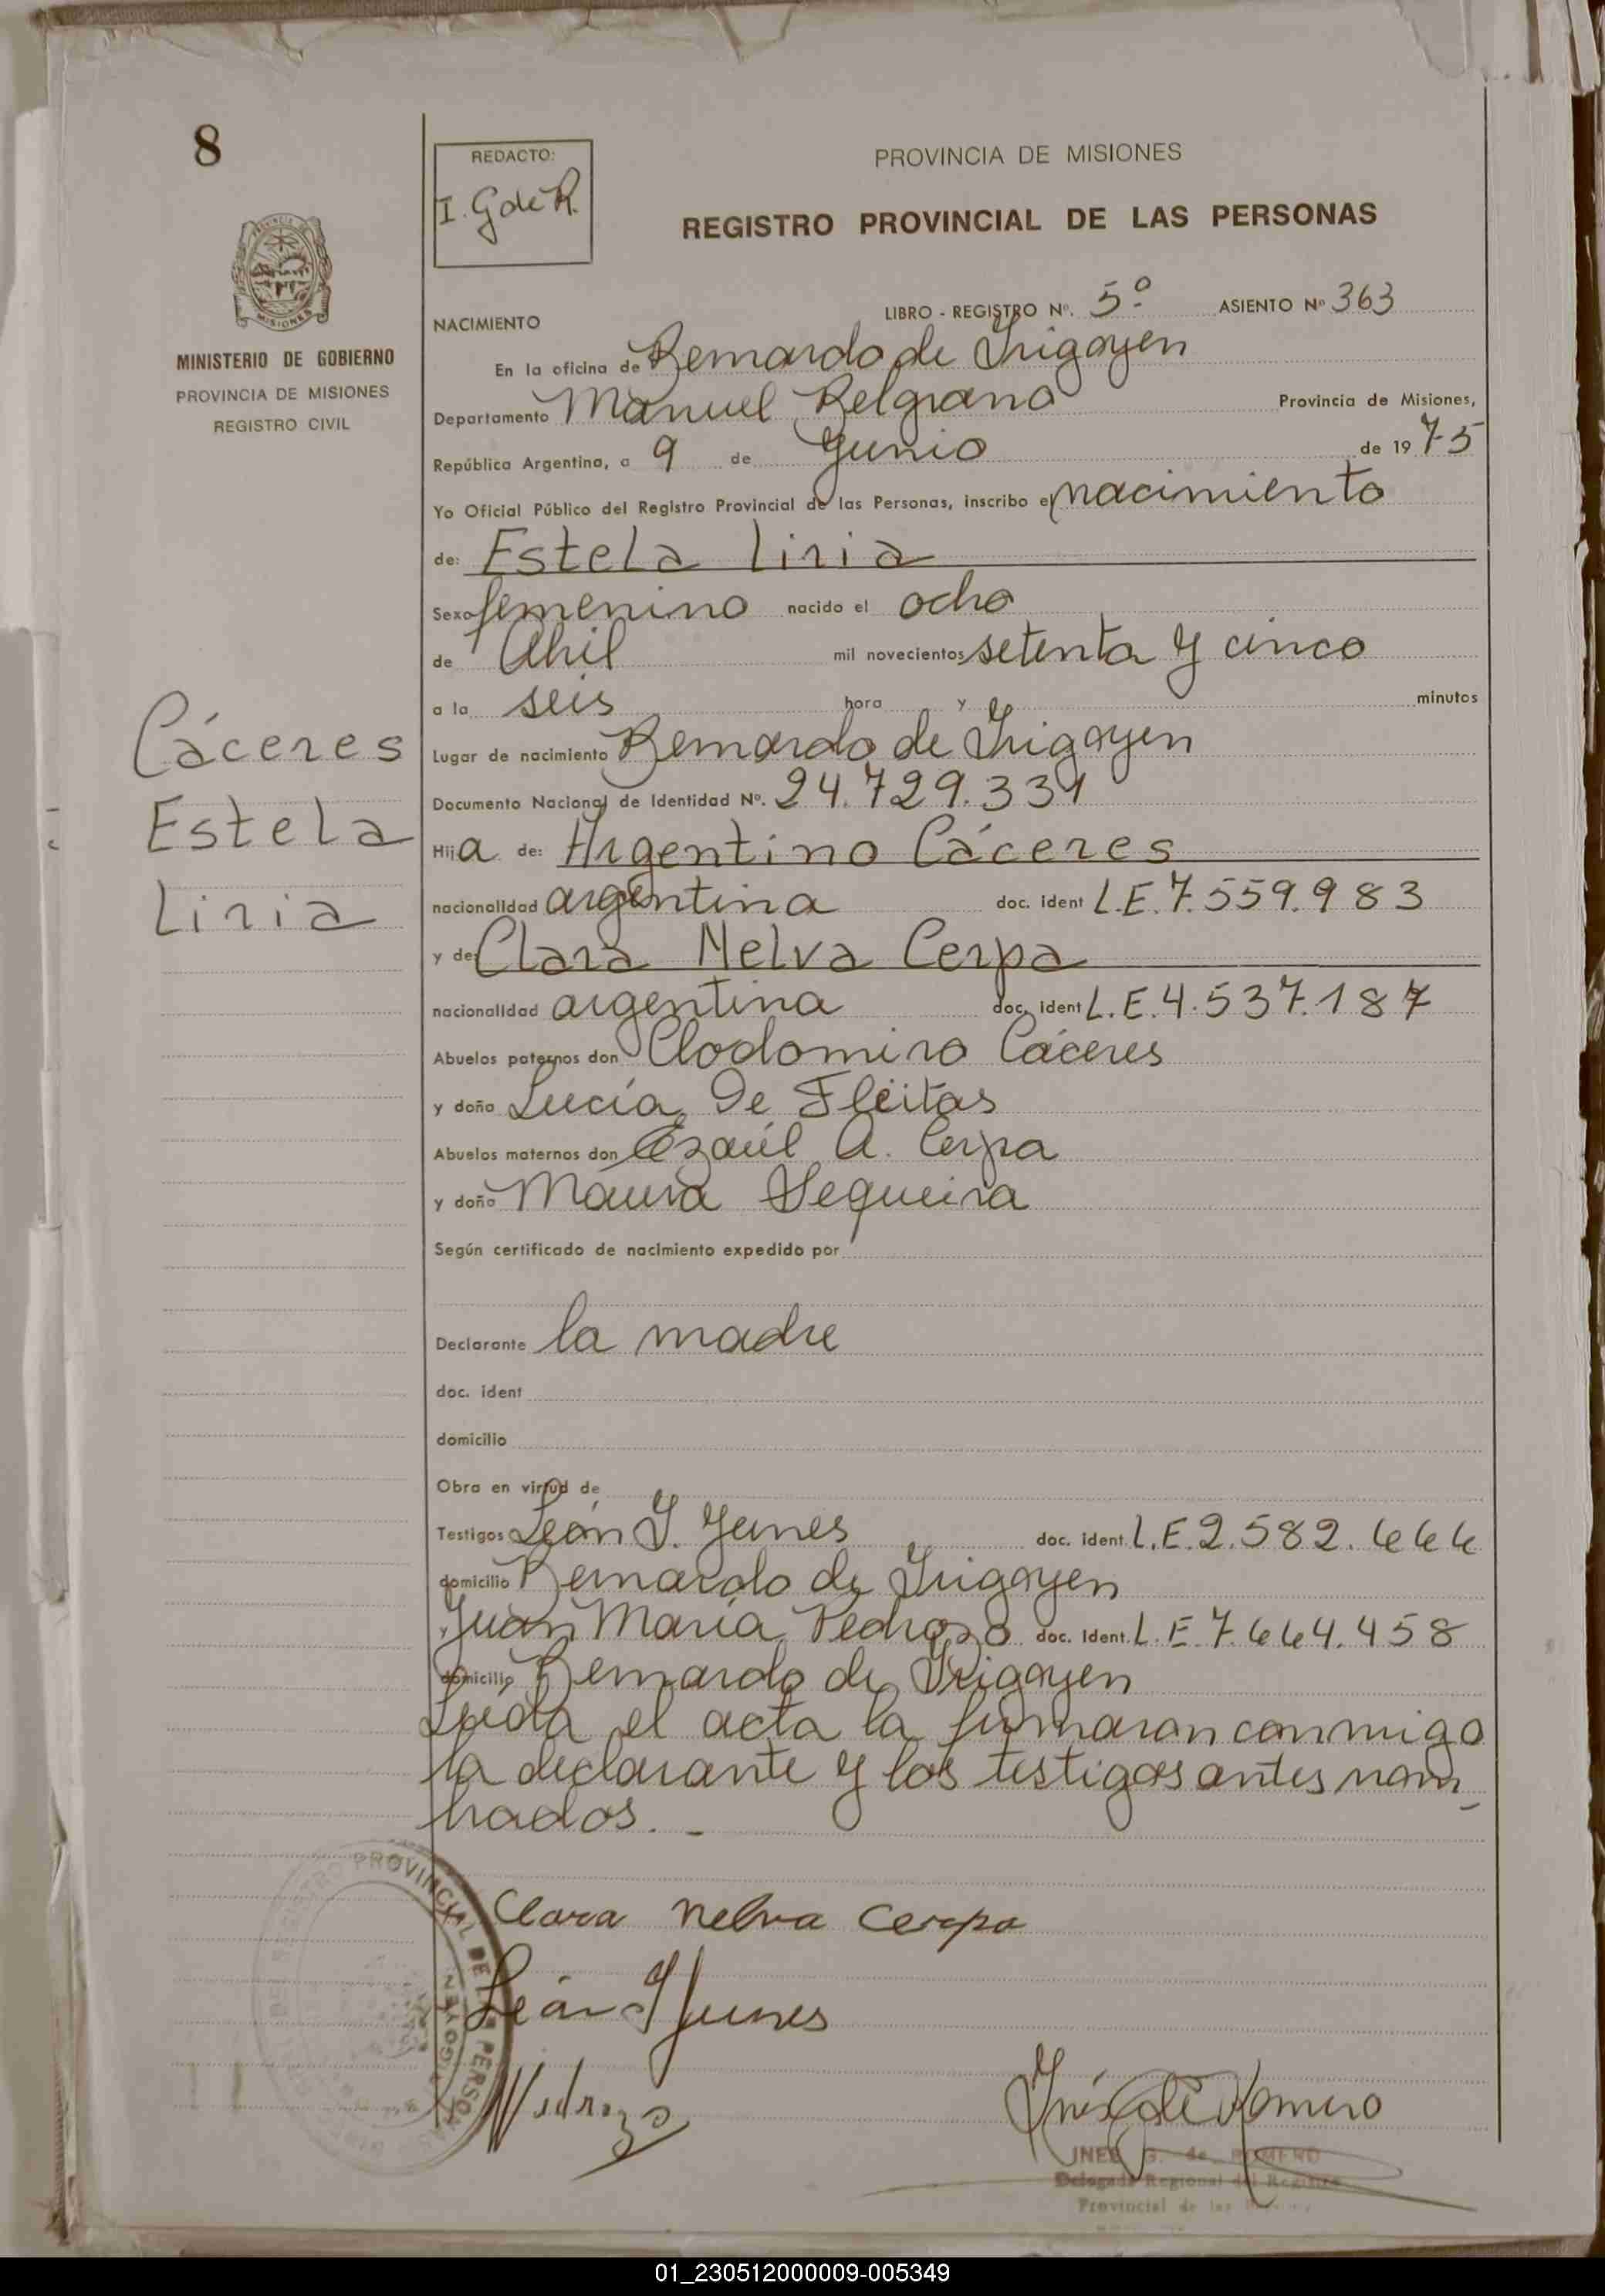 8
REDACTO:
I. G de R.
PROVINCIA DE MISIONES
REGISTRO PROVINCIAL DE LAS PERSONAS
MISIONES
MINISTERIO DE GOBIERNO
PROVINCIA DE MISIONES
REGISTRO CIVIL
LIBRO - REGISTRO Nº. 5º ASIENTO Nº 363
NACIMIENTO
En la oficina de Bernardo de Irigoyen
Departamento Manuel Belgrano Provincia de Misiones,
República Argentina, a 9 de Junio de 1975
Yo Oficial Público del Registro Provincial de las Personas, inscribo el nacimiento
de: Estela Liria
Sexo femenino nacido el ocho
de Abril mil novecientos setenta y cinco
a la seis hora y minutos
Cáceres
Estela
Liria
Lugar de nacimiento Bernardo de Irigoyen
Documento Nacional de Identidad Nº. 24.729.331
Hija de: Argentino Cáceres
nacionalidad argentina doc. ident L.E.7.559.983
y de: Clara Nelva Cerpa
nacionalidad argentina doc. ident L.E.4.537.187
Abuelos paternos don Clodomiro Cáceres
y doña Lucía De Fleitas
Abuelos maternos don Ezaúl A. Cerpa
y doña Maura Sequeira
Según certificado de nacimiento expedido por
Declarante la madre
doc. ident
domicilio
Obra en virtud de
Testigos León J. Yunes doc. ident. L.E.2.582.666
domicilio Bernardo de Irigoyen
y Juan María Pedrozo doc. ident. L.E.7.664.458
domicilio Bernardo de Irigoyen
Leída el acta la firmaran conmigo
la declarante y los testigos antes nom
brados. -
Clara Nelva Cerpa
León J Yunes
Pedrozo
Inés G de Romero
INES G. de ROMERO
Delegada Regional del Registro
Provincial de las
REGISTRO PROVINCIAL DE LAS PERSONAS
01_230512000009-005349